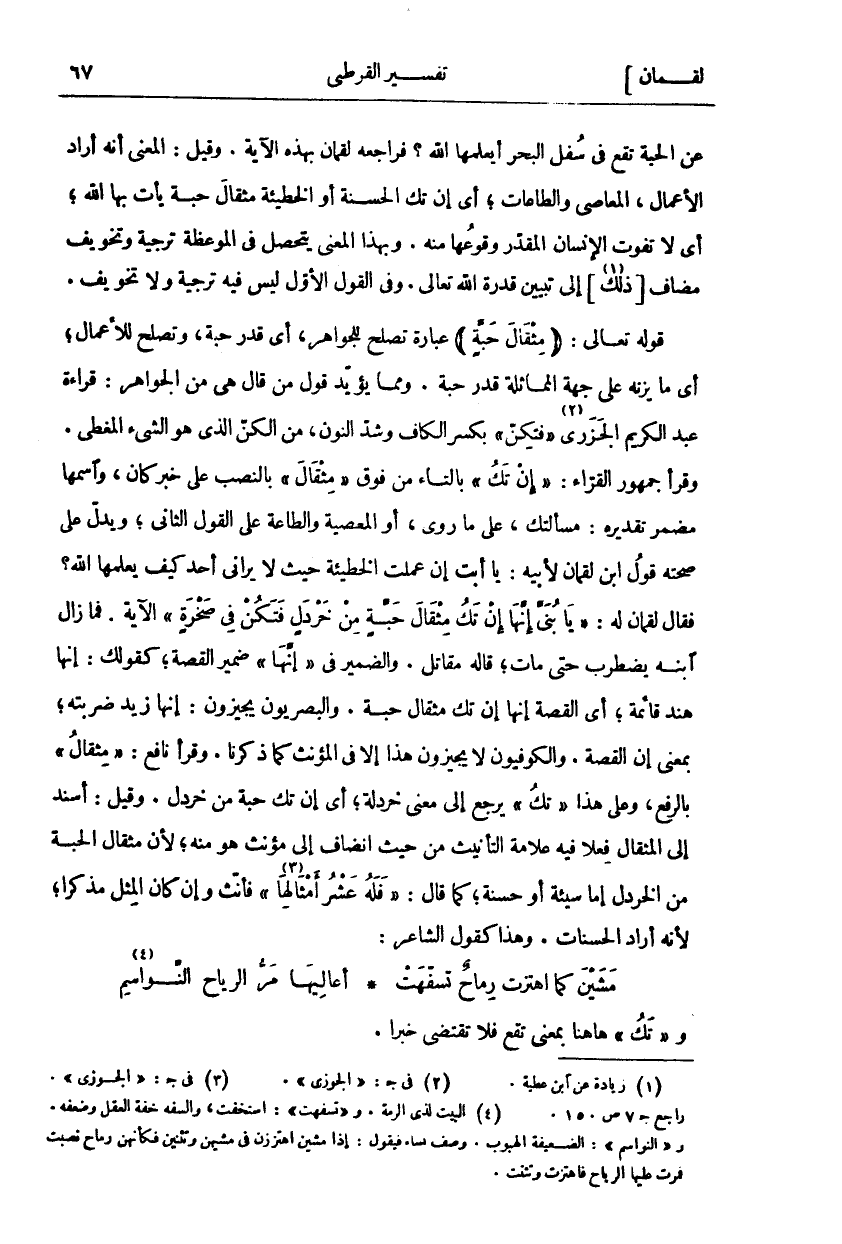 لقمان ] تفسير القرطبى ٦٧
عن الحبة تقع فى سُفل البحر أيعلمها الله ؟ فراجعه لقمان بهذه الآية . وقيل : المعنى أنه أراد
الأعمال ، المعاصى والطاعات ؛ أى إن تك الحسنة أو الخطيئة مثقالَ حبة يأت بها الله ؛
أى لا تفوت الإنسان المقدّر وقوعُها منه . وبهذا المعنى يتحصل فى الموعظة ترجية وتخويف
مضاف [ ذلك ](١) إلى تبيين قدرة الله تعالى . وفى القول الأوّل ليس فيه ترجية ولا تخويف .
قوله تعالى : ﴿ مِثْقَالَ حَبَّةٍ ﴾ عبارة تصلح للجواهر، أى قدر حبة، وتصلح للأعمال؛
أى ما يزنه على جهة المماثلة قدر حبة . ومما يؤيّد قول من قال هى من الجواهر : قراءة
عبد الكريم الجَزَرى(٢) «فتكِنّ» بكسر الكاف وشدّ النون، من الكنّ الذى هو الشىء المغطى .
وقرأ جمهور القرّاء : « إِنْ تَكُ » بالتاء من فوق « مِثْقَالَ » بالنصب على خبر كان ، وآسمها
مضمر تقديره : مسألتك ، على ما روى ، أو المعصية والطاعة على القول الثانى ؛ ويدلّ على
صحته قولُ ابن لقمان لأبيه : يا أبت إن عملت الخطيئة حيث لا يرانى أحد كيف يعلمها الله؟
فقال لقمان له : « يَا بُنَىَّ إِنَّهَا إِنْ تَكُ مِثْقَالَ حَبَّةٍ مِنْ خَرْدَلٍ فَتَكُنْ فِى صَخْرَةٍ » الآية . فما زال
آبنه يضطرب حتى مات؛ قاله مقاتل . والضمير فى « إِنَّهَا » ضمير القصة؛ كقولك : إنها
هند قائمة ؛ أى القصة إنها إن تك مثقال حبة . والبصريون يجيزون : إنها زيد ضربته؛
بمعنى إن القصة . والكوفيون لا يجيزون هذا إلا فى المؤنث كما ذكرنا . وقرأ نافع : « مثقالُ »
بالرفع، وعلى هذا « تكُ » يرجع إلى معنى خردلة؛ أى إن تك حبة من خردل . وقيل : أسند
إلى المثقال فعلا فيه علامة التأنيث من حيث انضاف إلى مؤنث هو منه؛ لأن مثقال الحبة
من الخردل إما سيئة أو حسنة؛ كما قال : « فَلَهُ عَشْرُ أَمْثَالِهَا »(٣) فأنّث وإن كان المِثل مذكرا؛
لأنه أراد الحسنات . وهذا كقول الشاعر :
مَشَيْنَ كما اهتزت رِماحٌ تسفّهَتْ * أعالِيهَا مَرُّ الرياح النَّواسِمِ(٤)
و « تَكُ » هاهنا بمعنى تقع فلا تقتضى خبرا .
(١) زيادة عن آبن عطية . (٢) فى ج : « الجوزى » . (٣) فى ج : « الجوزى » .
راجع ج ٧ ص ١٥٠ . (٤) البيت لذى الرمة . و «تسفهت» : استخفت، والسفه خفة العقل وضعفه .
و « النواسم » : الضعيفة الهبوب . وصف نساء فيقول : إذا مشين اهتززن فى مشيهن وتثنين فكأنهن رماح نصبت
فمرت عليها الرياح فاهتزت وتثنت .